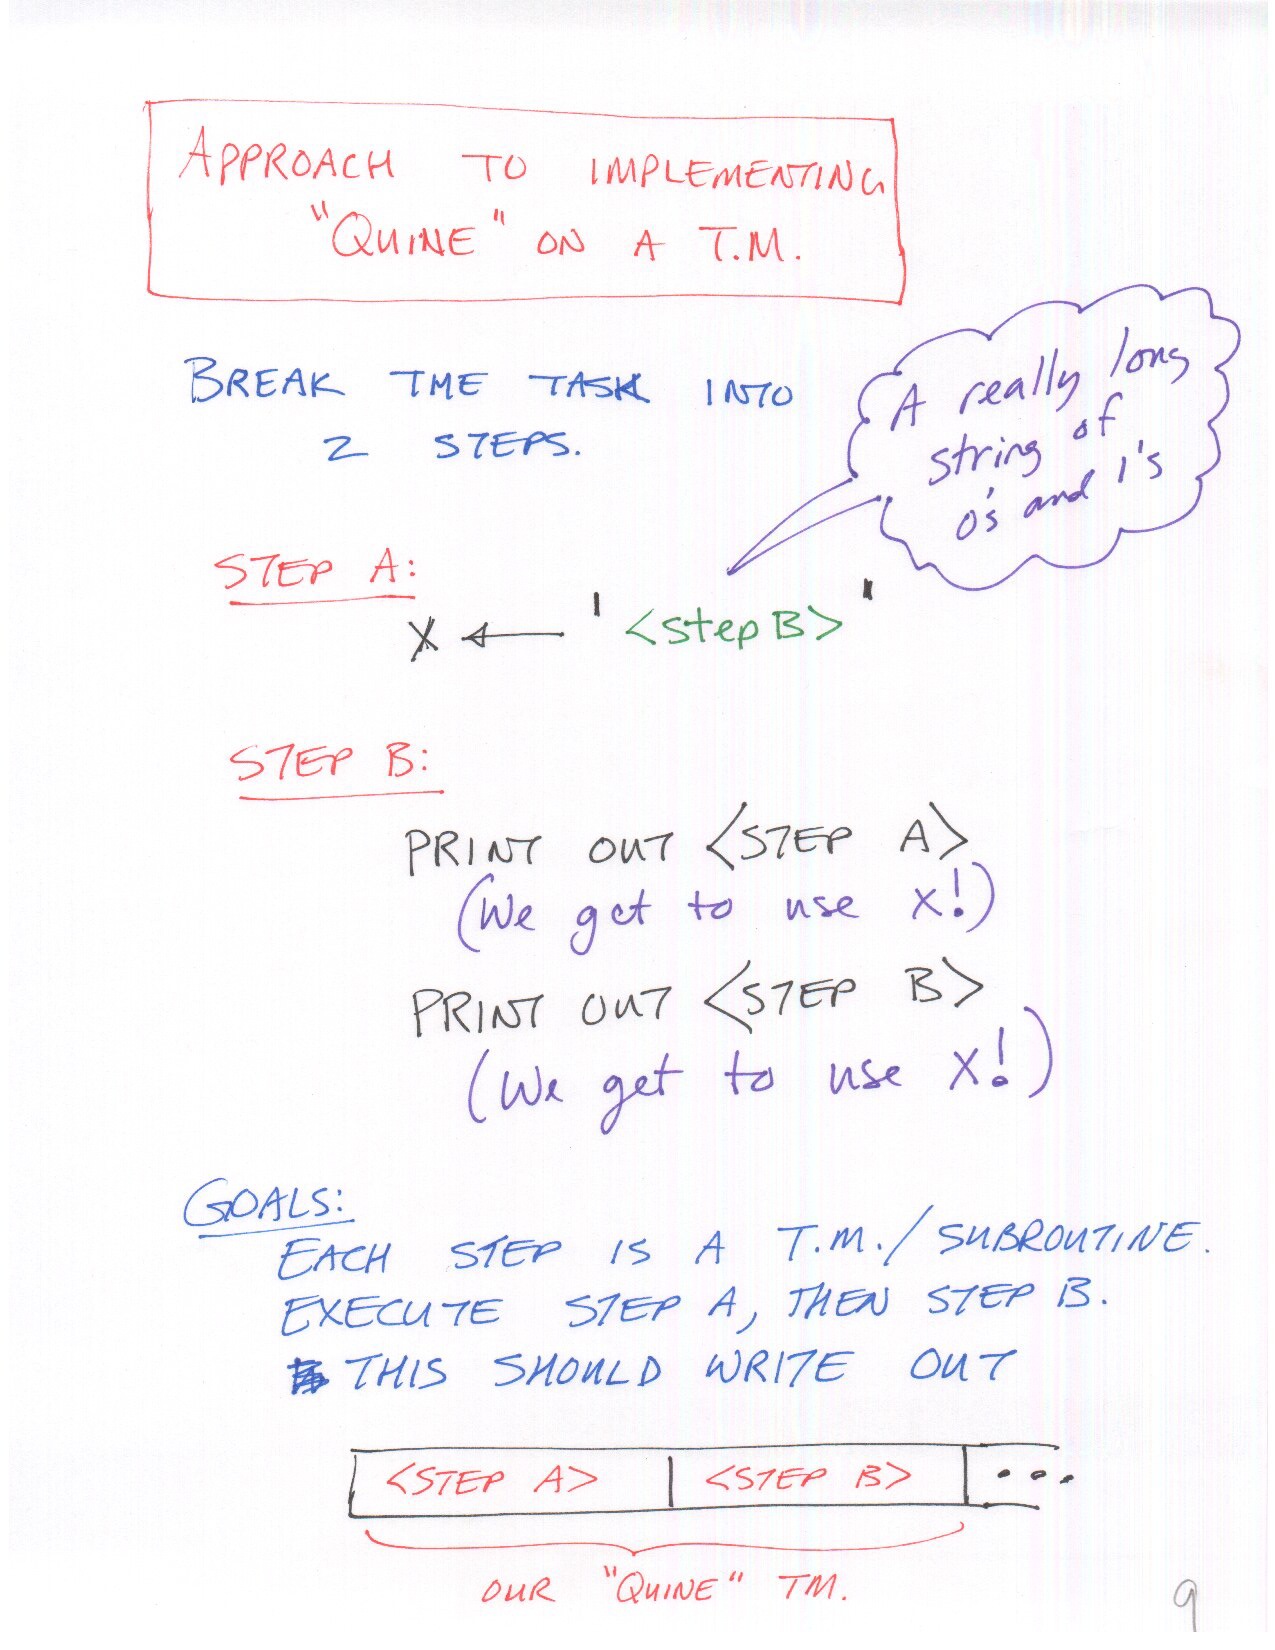 APPROACH TO IMPLEMENTING
"QUINE" ON A T.M.
BREAK THE TASK INTO
2 STEPS.
A really long
string of
0's and 1's
STEP A:
X ← '<step B>'
STEP B:
PRINT OUT <STEP A>
(We get to use X!)
PRINT OUT <STEP B>
(We get to use X!)
GOALS:
EACH STEP IS A T.M./SUBROUTINE.
EXECUTE STEP A, THEN STEP B.
THIS SHOULD WRITE OUT
<STEP A> <STEP B> ...
OUR "QUINE" TM.
9